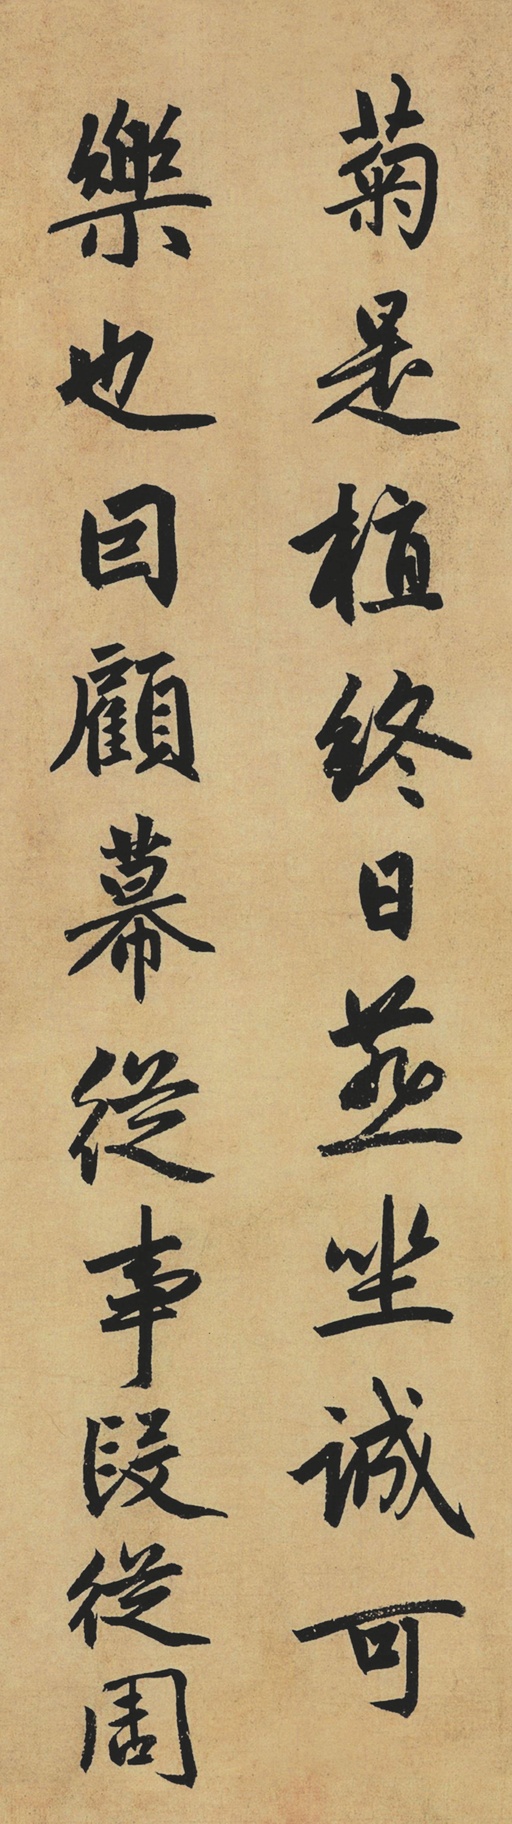 菊是植終日燕坐誠可
樂也囙顧幕從事段從周